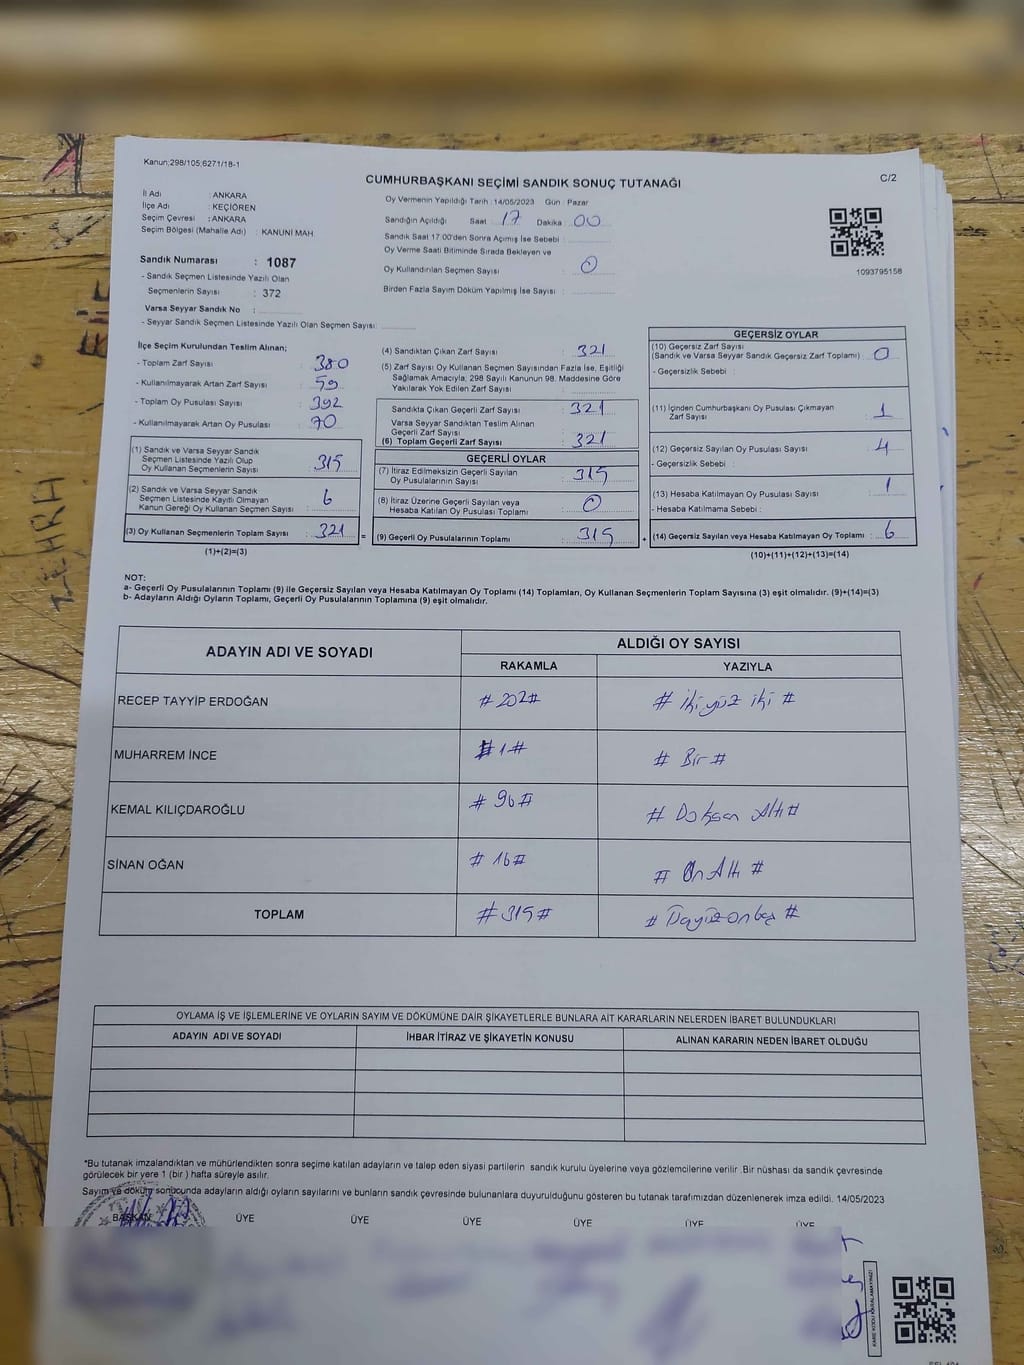 Kanun;298/105;6271/18-1
CUMHURBAŞKANI SEÇİMİ SANDIK SONUÇ TUTANAĞI
C/2
İl Adı : ANKARA
İlçe Adı : KEÇİÖREN
Seçim Çevresi : ANKARA
Seçim Bölgesi (Mahalle Adı) : KANUNİ MAH.
Oy Vermenin Yapıldığı Tarih :14/05/2023 Gün : Pazar
Sandığın Açıldığı Saat 17 Dakika : 00
Sandık Saat 17.00'den Sonra Açımış İse Sebebi :
Oy Verme Saati Bitiminde Sırada Bekleyen ve
Oy Kullandırılan Seçmen Sayısı : 0
Birden Fazla Sayım Döküm Yapılmış İse Sayısı :
1093795158
Sandık Numarası : 1087
- Sandık Seçmen Listesinde Yazılı Olan
Seçmenlerin Sayısı : 372
Varsa Seyyar Sandık No :
- Seyyar Sandık Seçmen Listesinde Yazılı Olan Seçmen Sayısı:
İlçe Seçim Kurulundan Teslim Alınan;
- Toplam Zarf Sayısı : 380
- Kullanılmayarak Artan Zarf Sayısı : 59
- Toplam Oy Pusulası Sayısı : 392
- Kullanılmayarak Artan Oy Pusulası : 70
(1) Sandık ve Varsa Seyyar Sandık
Seçmen Listesinde Yazılı Olup
Oy Kullanan Seçmenlerin Sayısı : 315
(2) Sandık ve Varsa Seyyar Sandık
Seçmen Listesinde Kayıtlı Olmayan
Kanun Gereği Oy Kullanan Seçmen Sayısı : 6
(3) Oy Kullanan Seçmenlerin Toplam Sayısı : 321
(1)+(2)=(3)
(4) Sandıktan Çıkan Zarf Sayısı : 321
(5) Zarf Sayısı Oy Kullanan Seçmen Sayısından Fazla İse, Eşitliği
Sağlamak Amacıyla; 298 Sayılı Kanunun 98. Maddesine Göre
Yakılarak Yok Edilen Zarf Sayısı :
Sandıkta Çıkan Geçerli Zarf Sayısı : 321
Varsa Seyyar Sandıktan Teslim Alınan
Geçerli Zarf Sayısı :
(6) Toplam Geçerli Zarf Sayısı : 321
GEÇERLİ OYLAR
(7) İtiraz Edilmeksizin Geçerli Sayılan
Oy Pusulalarının Sayısı : 315
(8) İtiraz Üzerine Geçerli Sayılan veya
Hesaba Katılan Oy Pusulası Toplamı : 0
= (9) Geçerli Oy Pusulalarının Toplamı : 315
GEÇERSİZ OYLAR
(10) Geçersiz Zarf Sayısı
(Sandık ve Varsa Seyyar Sandık Geçersiz Zarf Toplamı) : 0
- Geçersizlik Sebebi :
(11) İçinden Cumhurbaşkanı Oy Pusulası Çıkmayan
Zarf Sayısı : 1
(12) Geçersiz Sayılan Oy Pusulası Sayısı : 4
- Geçersizlik Sebebi :
(13) Hesaba Katılmayan Oy Pusulası Sayısı : 1
- Hesaba Katılmama Sebebi :
+ (14) Geçersiz Sayılan veya Hesaba Katılmayan Oy Toplamı : 6
(10)+(11)+(12)+(13)=(14)
NOT:
a- Geçerli Oy Pusulalarının Toplamı (9) ile Geçersiz Sayılan veya Hesaba Katılmayan Oy Toplamı (14) Toplamları, Oy Kullanan Seçmenlerin Toplam Sayısına (3) eşit olmalıdır. (9)+(14)=(3)
b- Adayların Aldığı Oyların Toplamı, Geçerli Oy Pusulalarının Toplamına (9) eşit olmalıdır.
ADAYIN ADI VE SOYADI
ALDIĞI OY SAYISI
RAKAMLA YAZIYLA
RECEP TAYYİP ERDOĞAN #202# # iki yüz iki #
MUHARREM İNCE #1# # Bir #
KEMAL KILIÇDAROĞLU # 96 # # Doksan Altı #
SİNAN OĞAN # 16 # # On Altı #
TOPLAM # 315 #
OYLAMA İŞ VE İŞLEMLERİNE VE OYLARIN SAYIM VE DÖKÜMÜNE DAİR ŞİKAYETLERLE BUNLARA AİT KARARLARIN NELERDEN İBARET BULUNDUKLARI
ADAYIN ADI VE SOYADI İHBAR İTİRAZ VE ŞİKAYETİN KONUSU ALINAN KARARIN NEDEN İBARET OLDUĞU
*Bu tutanak imzalandıktan ve mühürlendikten sonra seçime katılan adayların ve talep eden siyasi partilerin sandık kurulu üyelerine veya gözlemcilerine verilir .Bir nüshası da sandık çevresinde
görülecek bir yere 1 (bir ) hafta süreyle asılır.
Sayım ve döküm sonucunda adayların aldığı oyların sayılarını ve bunların sandık çevresinde bulunanlara duyurulduğunu gösteren bu tutanak tarafımızdan düzenlenerek imza edildi. 14/05/2023
BAŞKAN ÜYE ÜYE ÜYE ÜYE ÜYE ÜYE
KARE KODU KARALAMAYINIZ!
ZEHRA